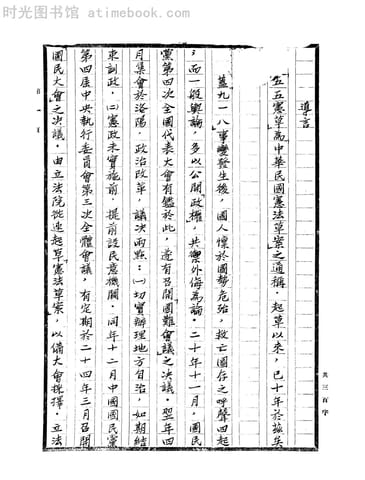 时光图书馆 - atimebook.com
導言
五五憲草為中華民國憲法草案之通稱．起草以來，已十年於茲矣
蓋九一八事變發生後，國人懷於國勢危殆，救亡圖存之呼聲四起
；而一般輿論，多以公開政權，共禦外侮為論．二十年十一月，國民
黨第四次全國代表大會有鑑於此，遂有召開國難會議之決議．翌年四
月集會於洛陽，政治改革，議決兩點：㈠切實辦理地方自治，如期結
束訓政．㈡憲政未實施前．提前設民意機關．同年十二月中國國民黨
第四屆中央執行委員會第三次全體會議，有定期於二十四年三月召開
國民大會之決議．由立法院從速起草憲法草案，以備大會採擇．立法
共三百字